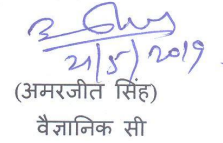 21/5/2019
(अमरजीत सिंह)
वैज्ञानिक सी